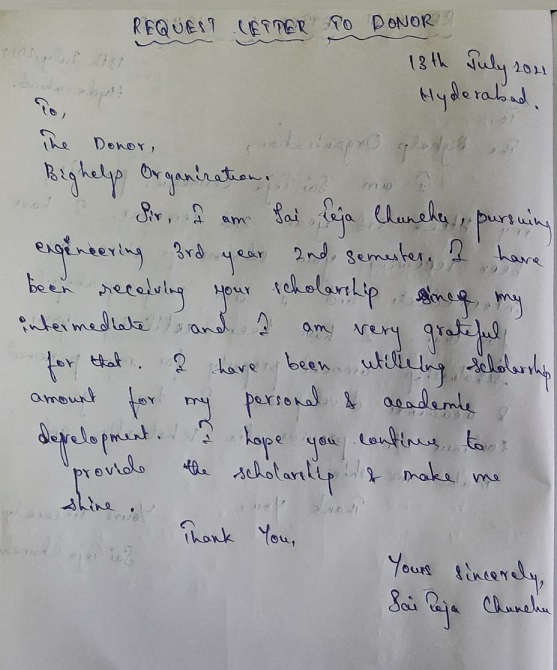 REQUEST LETTER TO DONOR
13th July 2021
Hyderabad.
To,
The Donor,
Bighelp Organization.
Sir, I am Sai Teja Chunchu, pursuing
engineering 3rd year 2nd semester. I have
been receiving your scholarship since my
intermediate and I am very grateful
for that. I have been utilizing scholarship
amount for my personal & academic
development. I hope you continue to
provide the scholarship & make me
shine.
Thank You,
Yours sincerely,
Sai Teja Chunchu